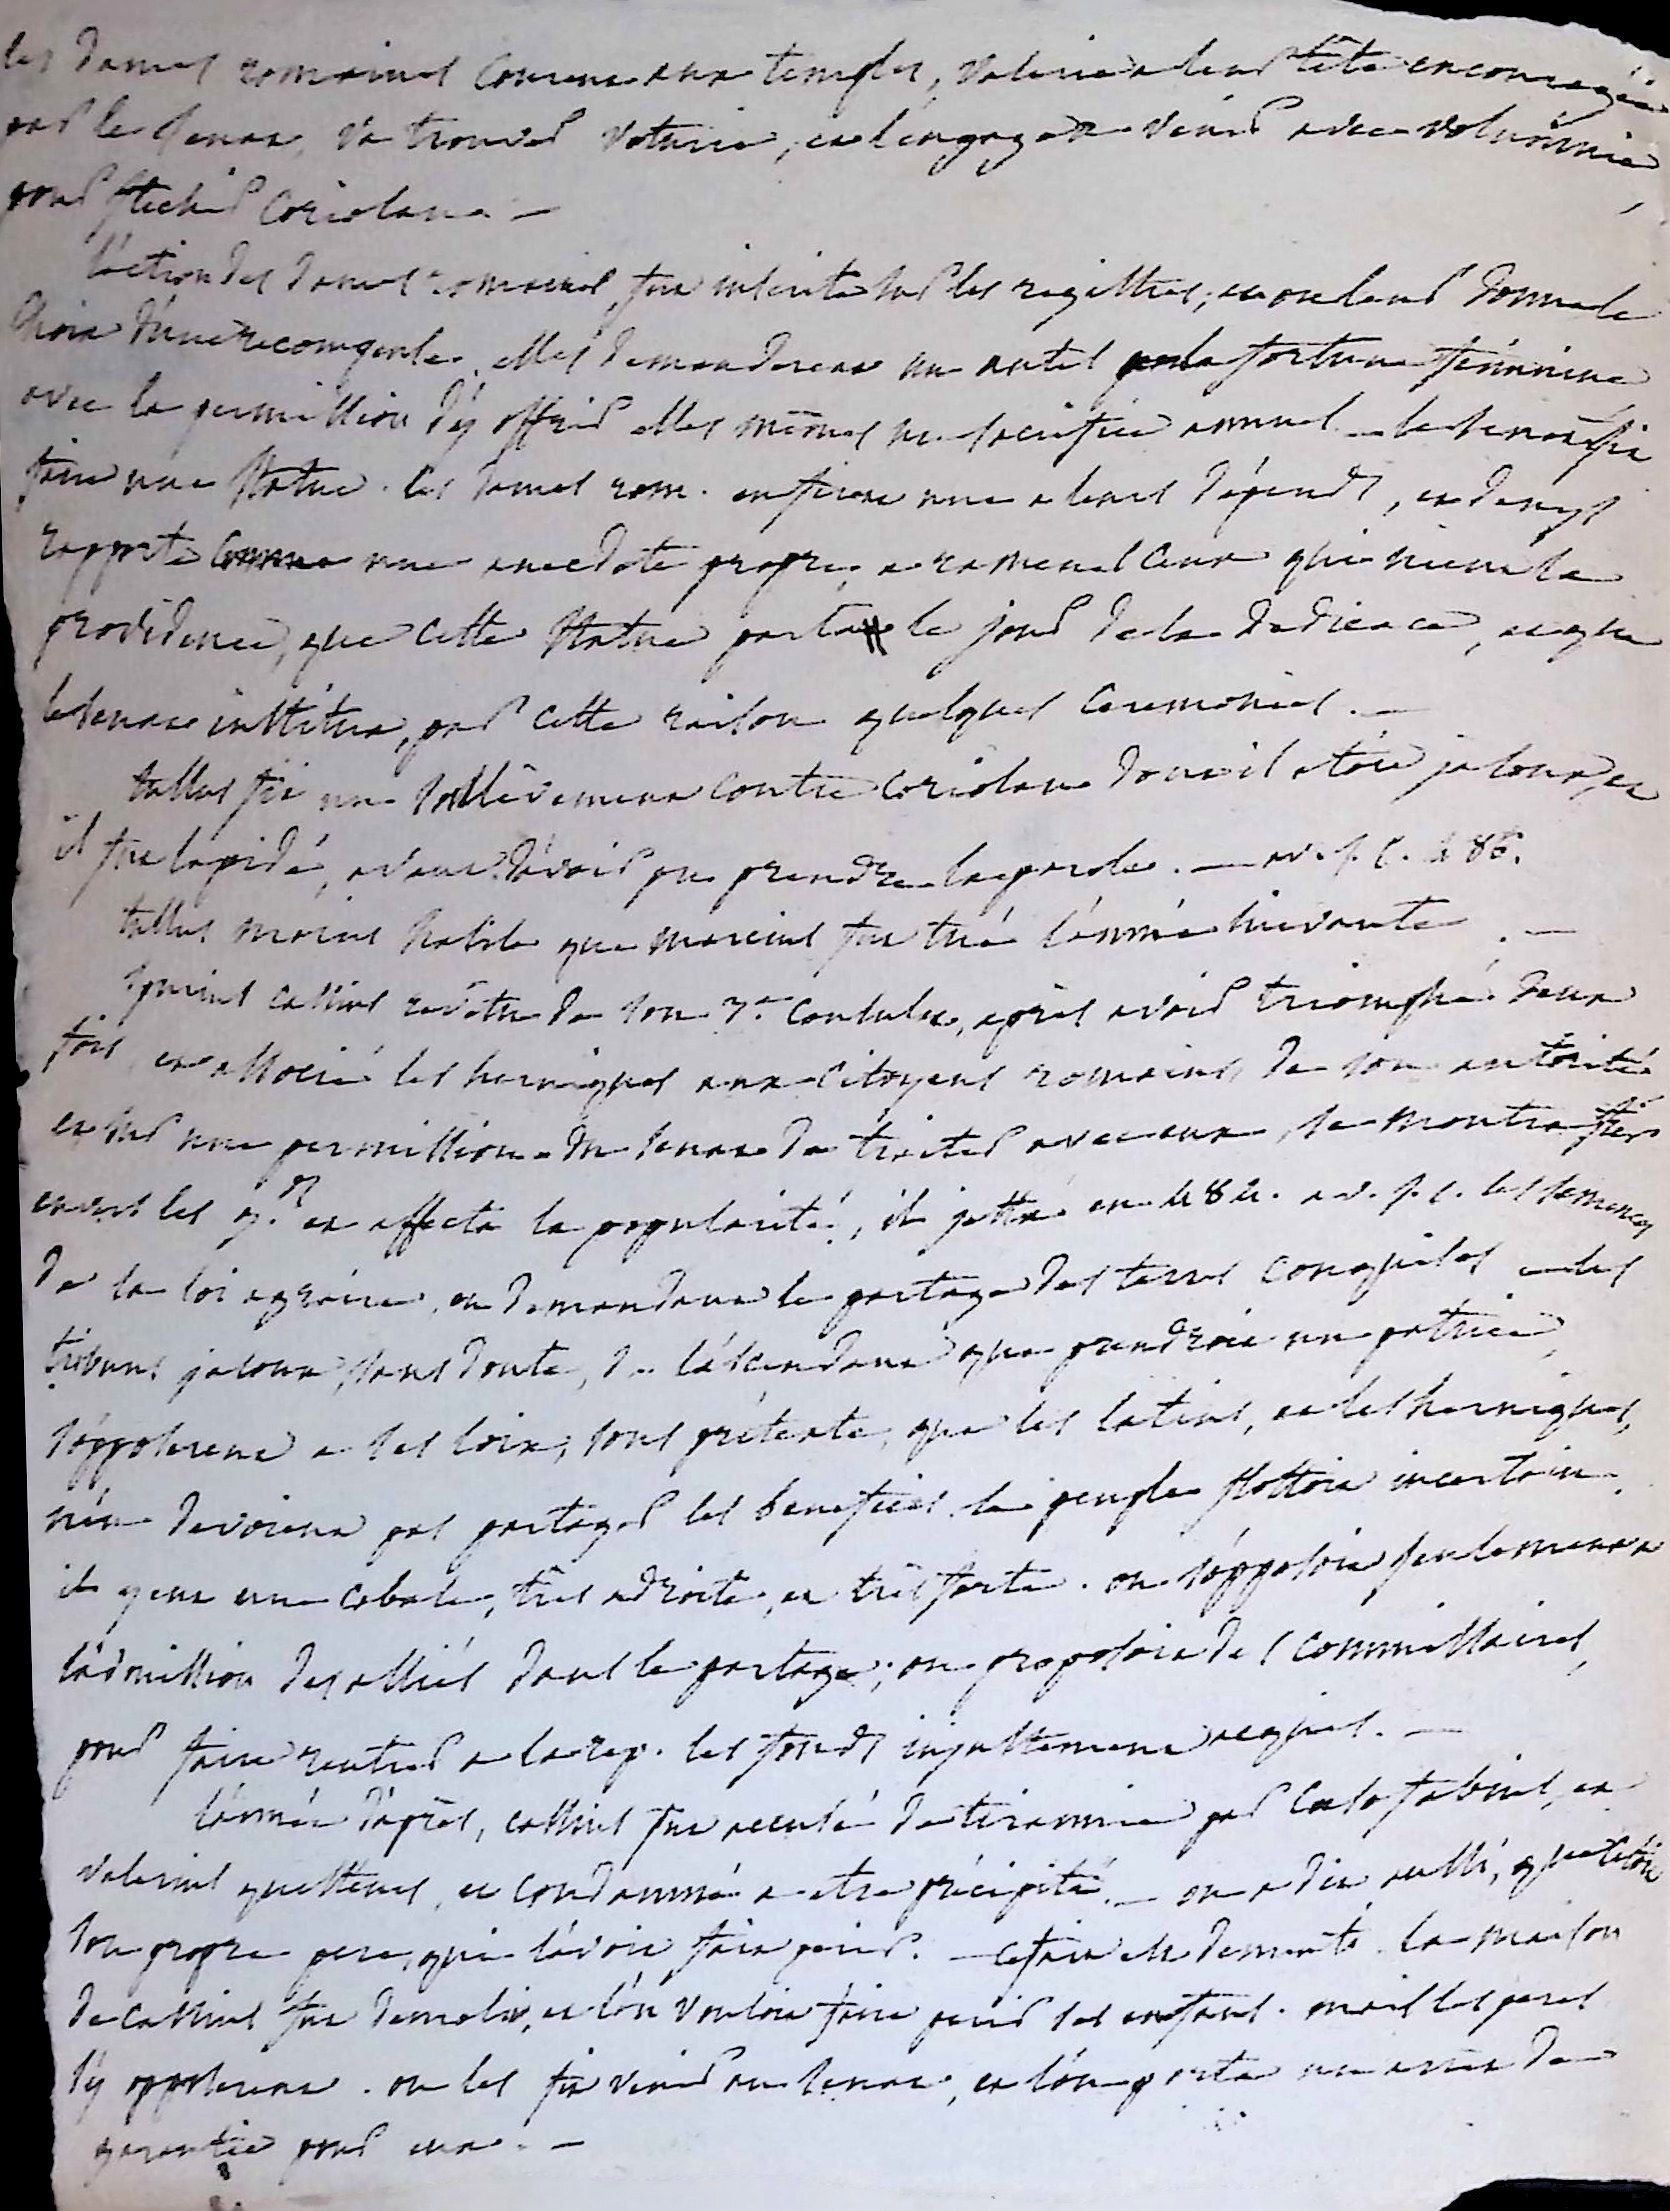 les dames romaines courent aux temples, Valerie a leur tête encouragée
par le senat, va trouver Veturie, et l'engage a venir avec volumnie,
pour flechir Coriolan. —
l'action des dames romaines, fut inscrite sur les registres; et on leur donna le
choix d'une recompense. elles demanderent un autel a la fortune féminine
avec la permission d'y offrir elles mêmes un sacrifice annuel. — le senat fit
faire une statue. les dames rom. en firent une a leurs dépends, et denys
rapporte comme une anecdote propre, a ramener ceux qui nient la
providence, que cette statue parla le jour de la dedicace, et que
le senat institua, par cette raison quelques ceremonies. —
tullus fit un soulèvement contre coriolan dont il étoit jaloux, et
il fut lapidé, avant d'avoir pu prendre la parole. — av. j. c. 486.
tullus moins habile que marcius fut tué l'année suivante. —
spurius cassius revêtu de son 3e. consulat, après avoir triomphé deux
fois, et associé les herniques aux citoyens romains, de son autorité
et sur une permission du senat de traiter avec eux, se montra fier
envers les p.rs et affecta la popularité, il jetta en 484. av. j. c. les semences
de la loi agraire, en demandant le partage des terres conquises — les
tribuns jaloux, sans doute, de l'ascendant que prendroit un patrice,
s'opposerent a ses loix, sous prétexte, que les latins, et les herniques,
n'en devoient pas partager les benefices. le peuple flottoit incertain.
il y eut une cabale, très adroite, et très forte. on s'opposoit seulement a
l'admission des alliés dans le partage; on proposoit des commissaires,
pour faire rentrer a la rep. les fonds injustement acquis. —
l'année d'après, cassius fut accusé de tirannie par Ceso fabius, et
valerius questeurs, et condamné a etre précipité. — on a dit aussi, que c'étoit
son propre pere, qui l'avoit fait perir. — ce fait est dementi. la maison
de cassius fut demolie, et l'on vouloit faire perir ses enfans. mais les peres
s'y opposerent. on les fit venir au senat, et l'on porta un arret de
garantie pour eux. —